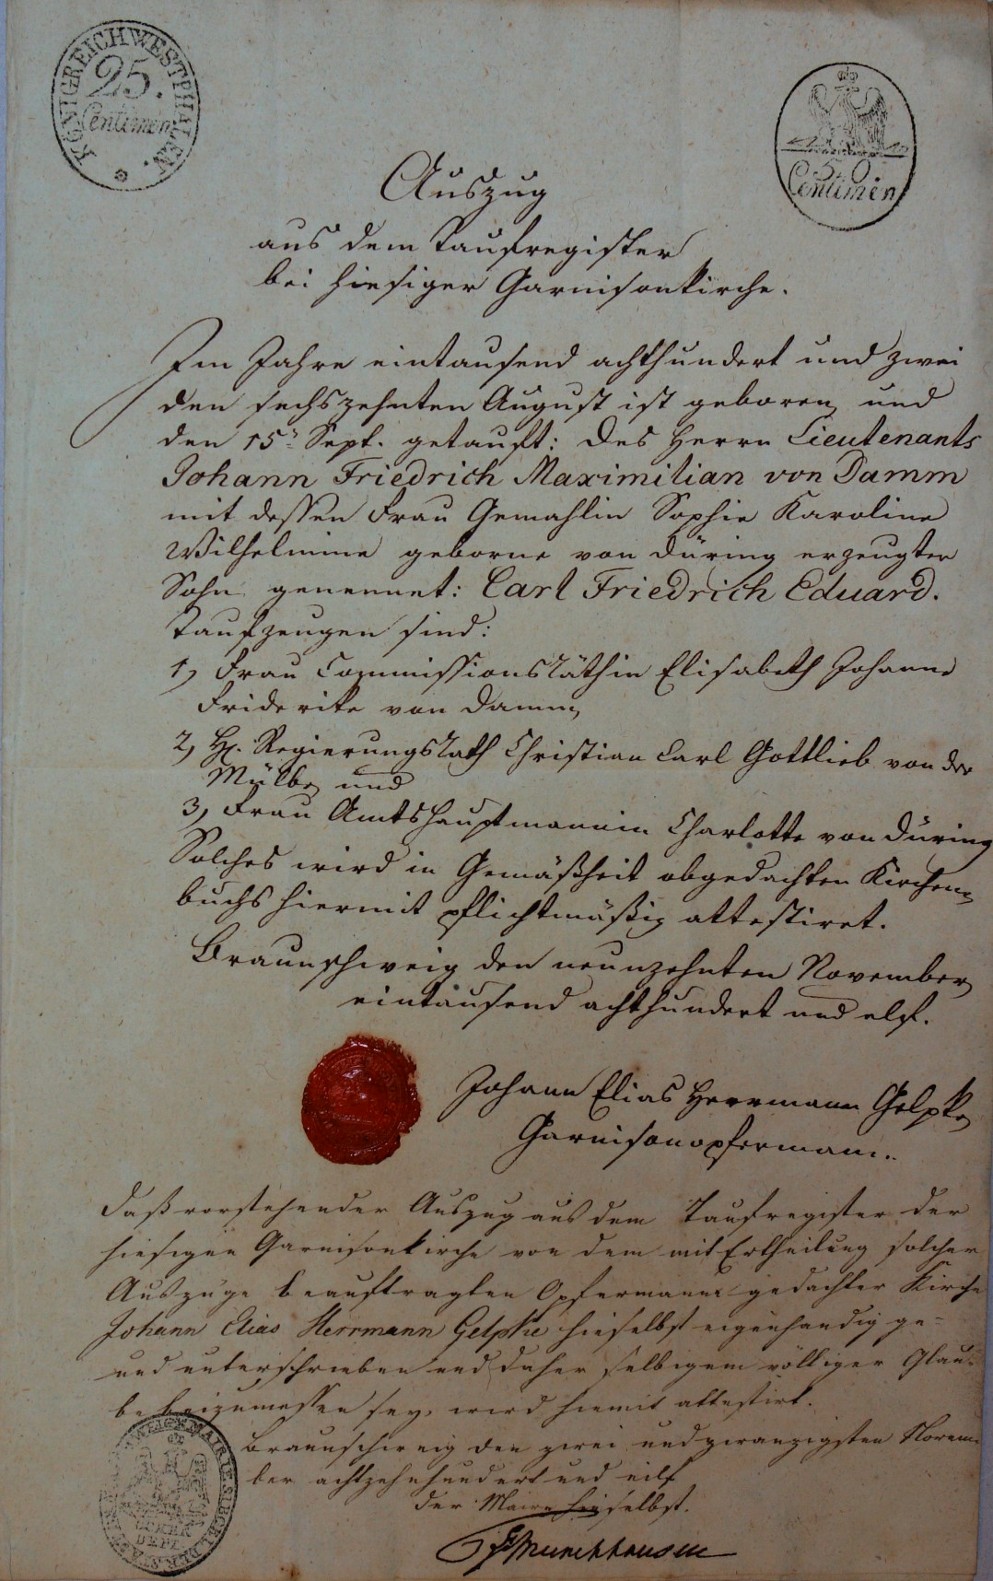 KÖNIGREICH WESTPHALEN.
25.
Centimen
50
Centimen
Auszug
aus dem Taufregister
bei hiesiger Garnisonkirche.
Im Jahre eintausend achthundert und zwei
den sechszehnten August ist geboren, und
den 15n Sept. getauft: des Herrn Lieutenants
Johann Friedrich Maximilian von Damm
mit dessen Frau Gemahlin Sophie Karoline
Wilhelmine geborne von Düring erzeugter
Sohn genennet: Carl Friedrich Eduard.
Taufzeugen sind:
1, Frau Commissionsräthin Elisabeth Johanne
Friderike von Damm,
2, H. Regierungsrath Christian Carl Gottlieb von der
Mülbe, und
3, Frau Amtshauptmannin Charlotte von Düring
Solches wird in Gemäßheit obgedachten Kirchen-
buchs hiermit pflichtmäßig attestiret.
Braunschweig den neunzehnten November
eintausend achthundert und elf.
Johann Elias Herrmann Gelpke,
Garnisonopfermann.
Daß vorstehender Auszug aus dem Taufregister der
hiesigen Garnisonkirche von dem mit Ertheilung solcher
Auszüge beauftragten Opfermanne gedachter Kirche
Johann Elias Herrmann Gelpke hieselbst eigenhändig ge-
und unterschrieben und daher selbigem völliger Glau-
be beizumessen sey, wird hiemit attestirt.
Braunschweig den zwei und zwanzigsten Novem-
ber achtzehnhundert und eilf
Der Maire hieselbst.
Munchhausen
MAIRIE SIEGEL DER STADT
OCKER
DEPT.